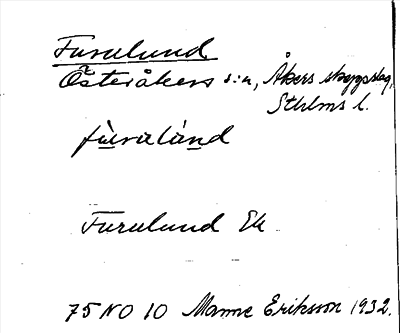 Furulund
Österåkers s:n, Åkers skeppslag,
Sthlms l.
fu̲rulàn̲d
Furulund Ek
75 NO 10 Manne Eriksson 1932.